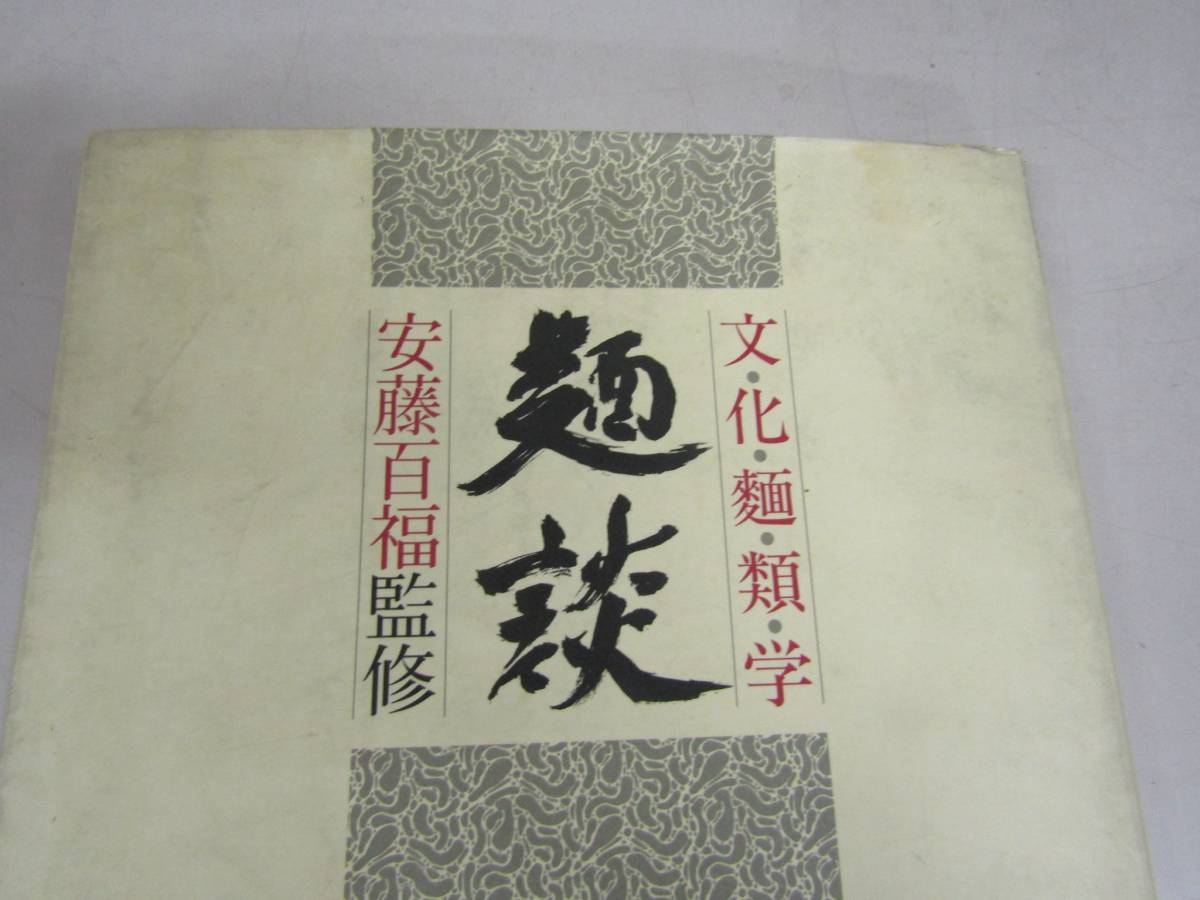 文・化・麵・類・学
麺談
安藤百福監修